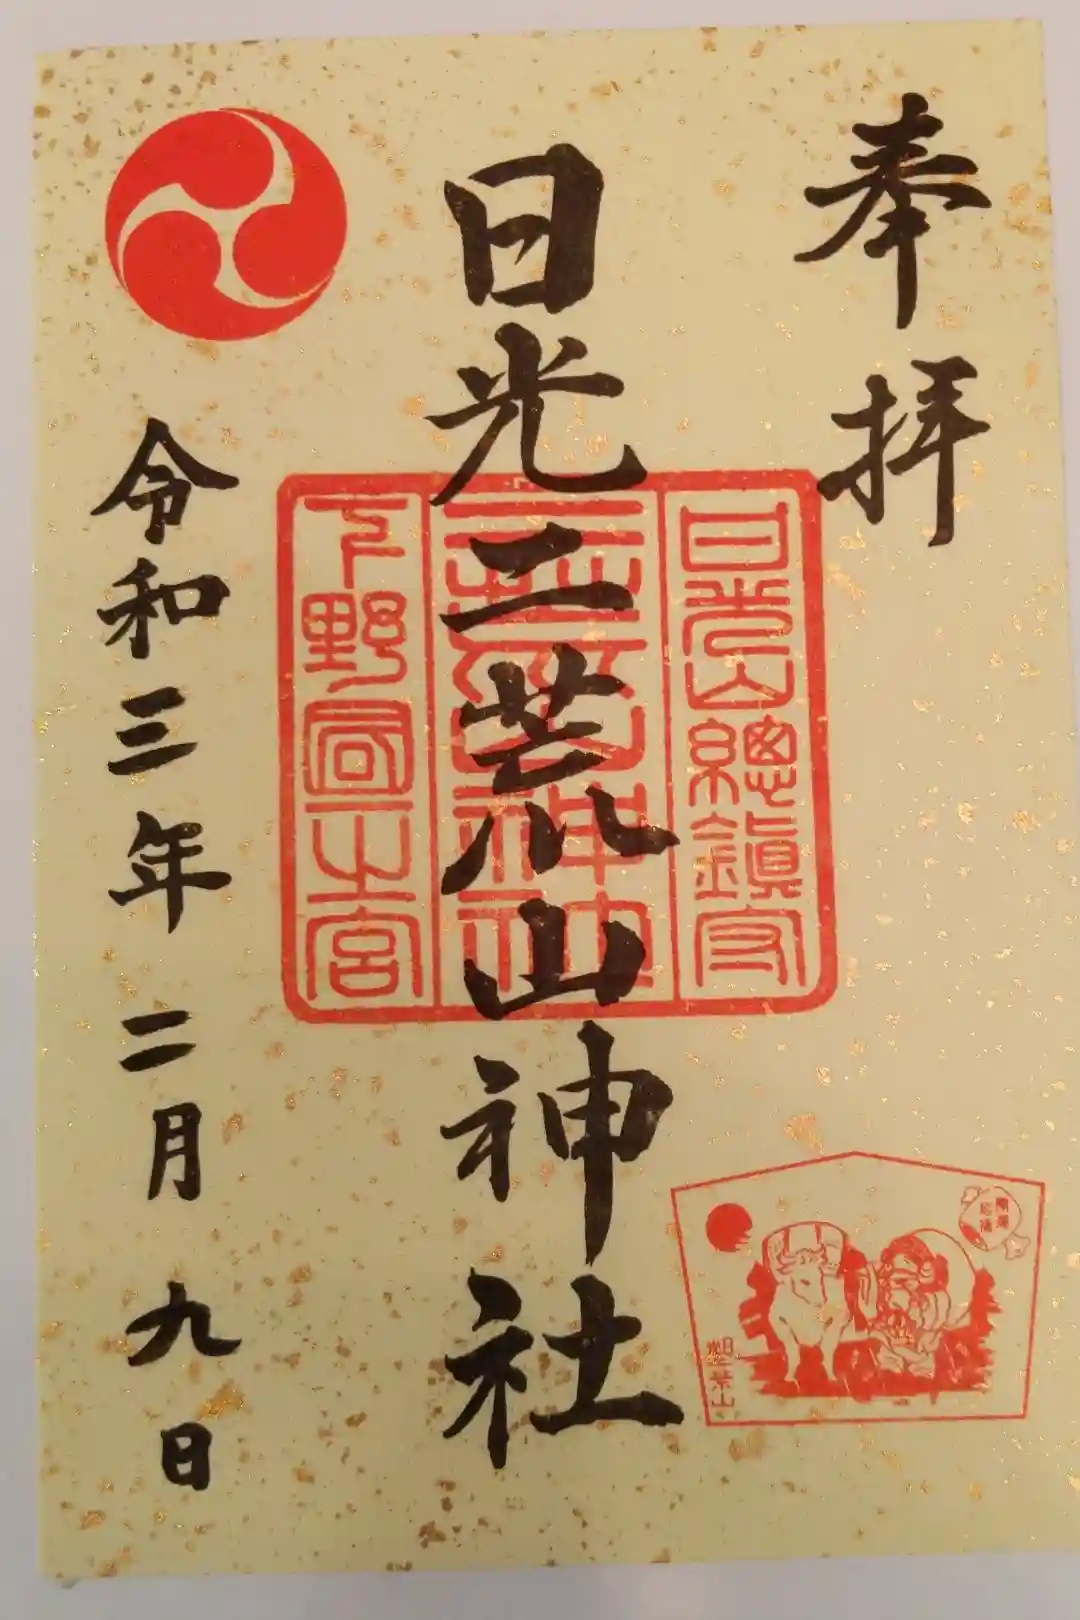 奉拝
日光山總鎮守
日光二荒山神社
二荒山神社
下野國一之宮
令和三年二月九日
開運
招福
二荒山